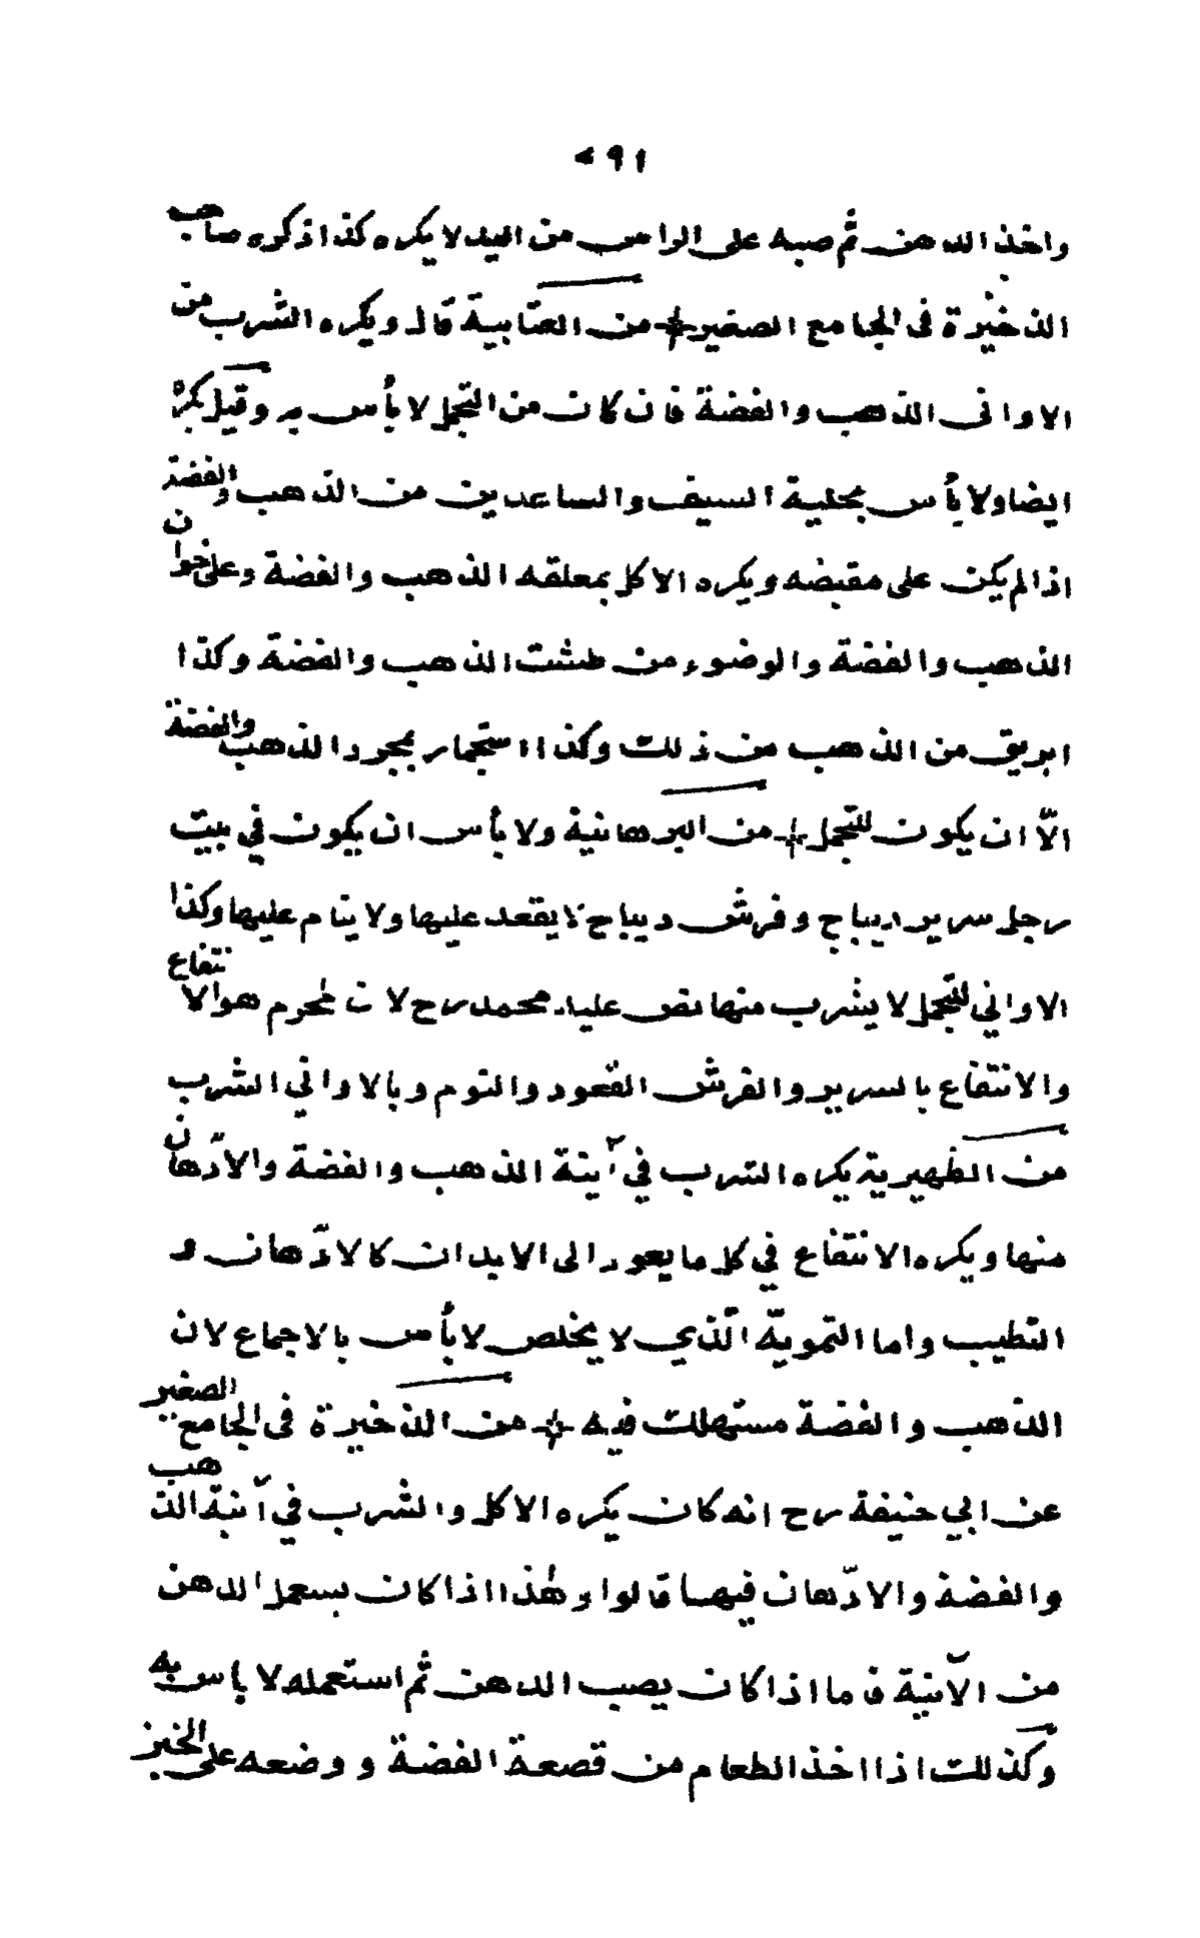 ٤٩١
واخذ الدهن ثم صبه على الراس من اليد لا يكره كذا ذكره صاحب
الذخيرة فى الجامع الصغير من العتابية قال ويكره الشرب من
الاوانى الذهب والفضة فان كان من التجمل لا بأس به وقيل يكره
ايضا ولا بأس بحلية السيف والساعدين من الذهب والفضة
اذا لم يكن على مقبضه ويكره الاكل بمعلقه الذهب والفضة وعلى خوان
الذهب والفضة والوضوء من طشت الذهب والفضة وكذا
ابريق من الذهب من ذلك وكذا استجمار بمجرد الذهب والفضة
الّا ان يكون للتجمل من البرهانية ولا بأس ان يكون في بيت
رجل سرير ديباج وفرش ديباج لا يقعد عليها ولا ينام عليها وكذا
الاواني للتجمل لا يشرب منها نص عليه محمد رح لان المحرم هو الانتفاع
والانتفاع بالسرير والفرش القعود والنوم وبالاواني الشرب
من الظهيرية يكره الشرب في آنية الذهب والفضة والادّهان
منها ويكره الانتفاع في كل ما يعود الى الابدان كالادّهان و
التطيب واما التمويّه الّذي لا يخلص لا بأس بالاجماع لان
الذهب والفضة مستهلك فيه من الذخيرة فى الجامع الصغير
عن ابي حنيفة رح انه كان يكره الاكل والشرب في آنية الذهب
والفضة والادّهان فيها قالوا وهٰذا اذا كان يسعمل الدهن
من الآنية فاما اذا كان يصب الدهن ثم استعمله لا باس به
وكذلك اذا اخذ الطعام من قصعة الفضة ووضعه على الخبز